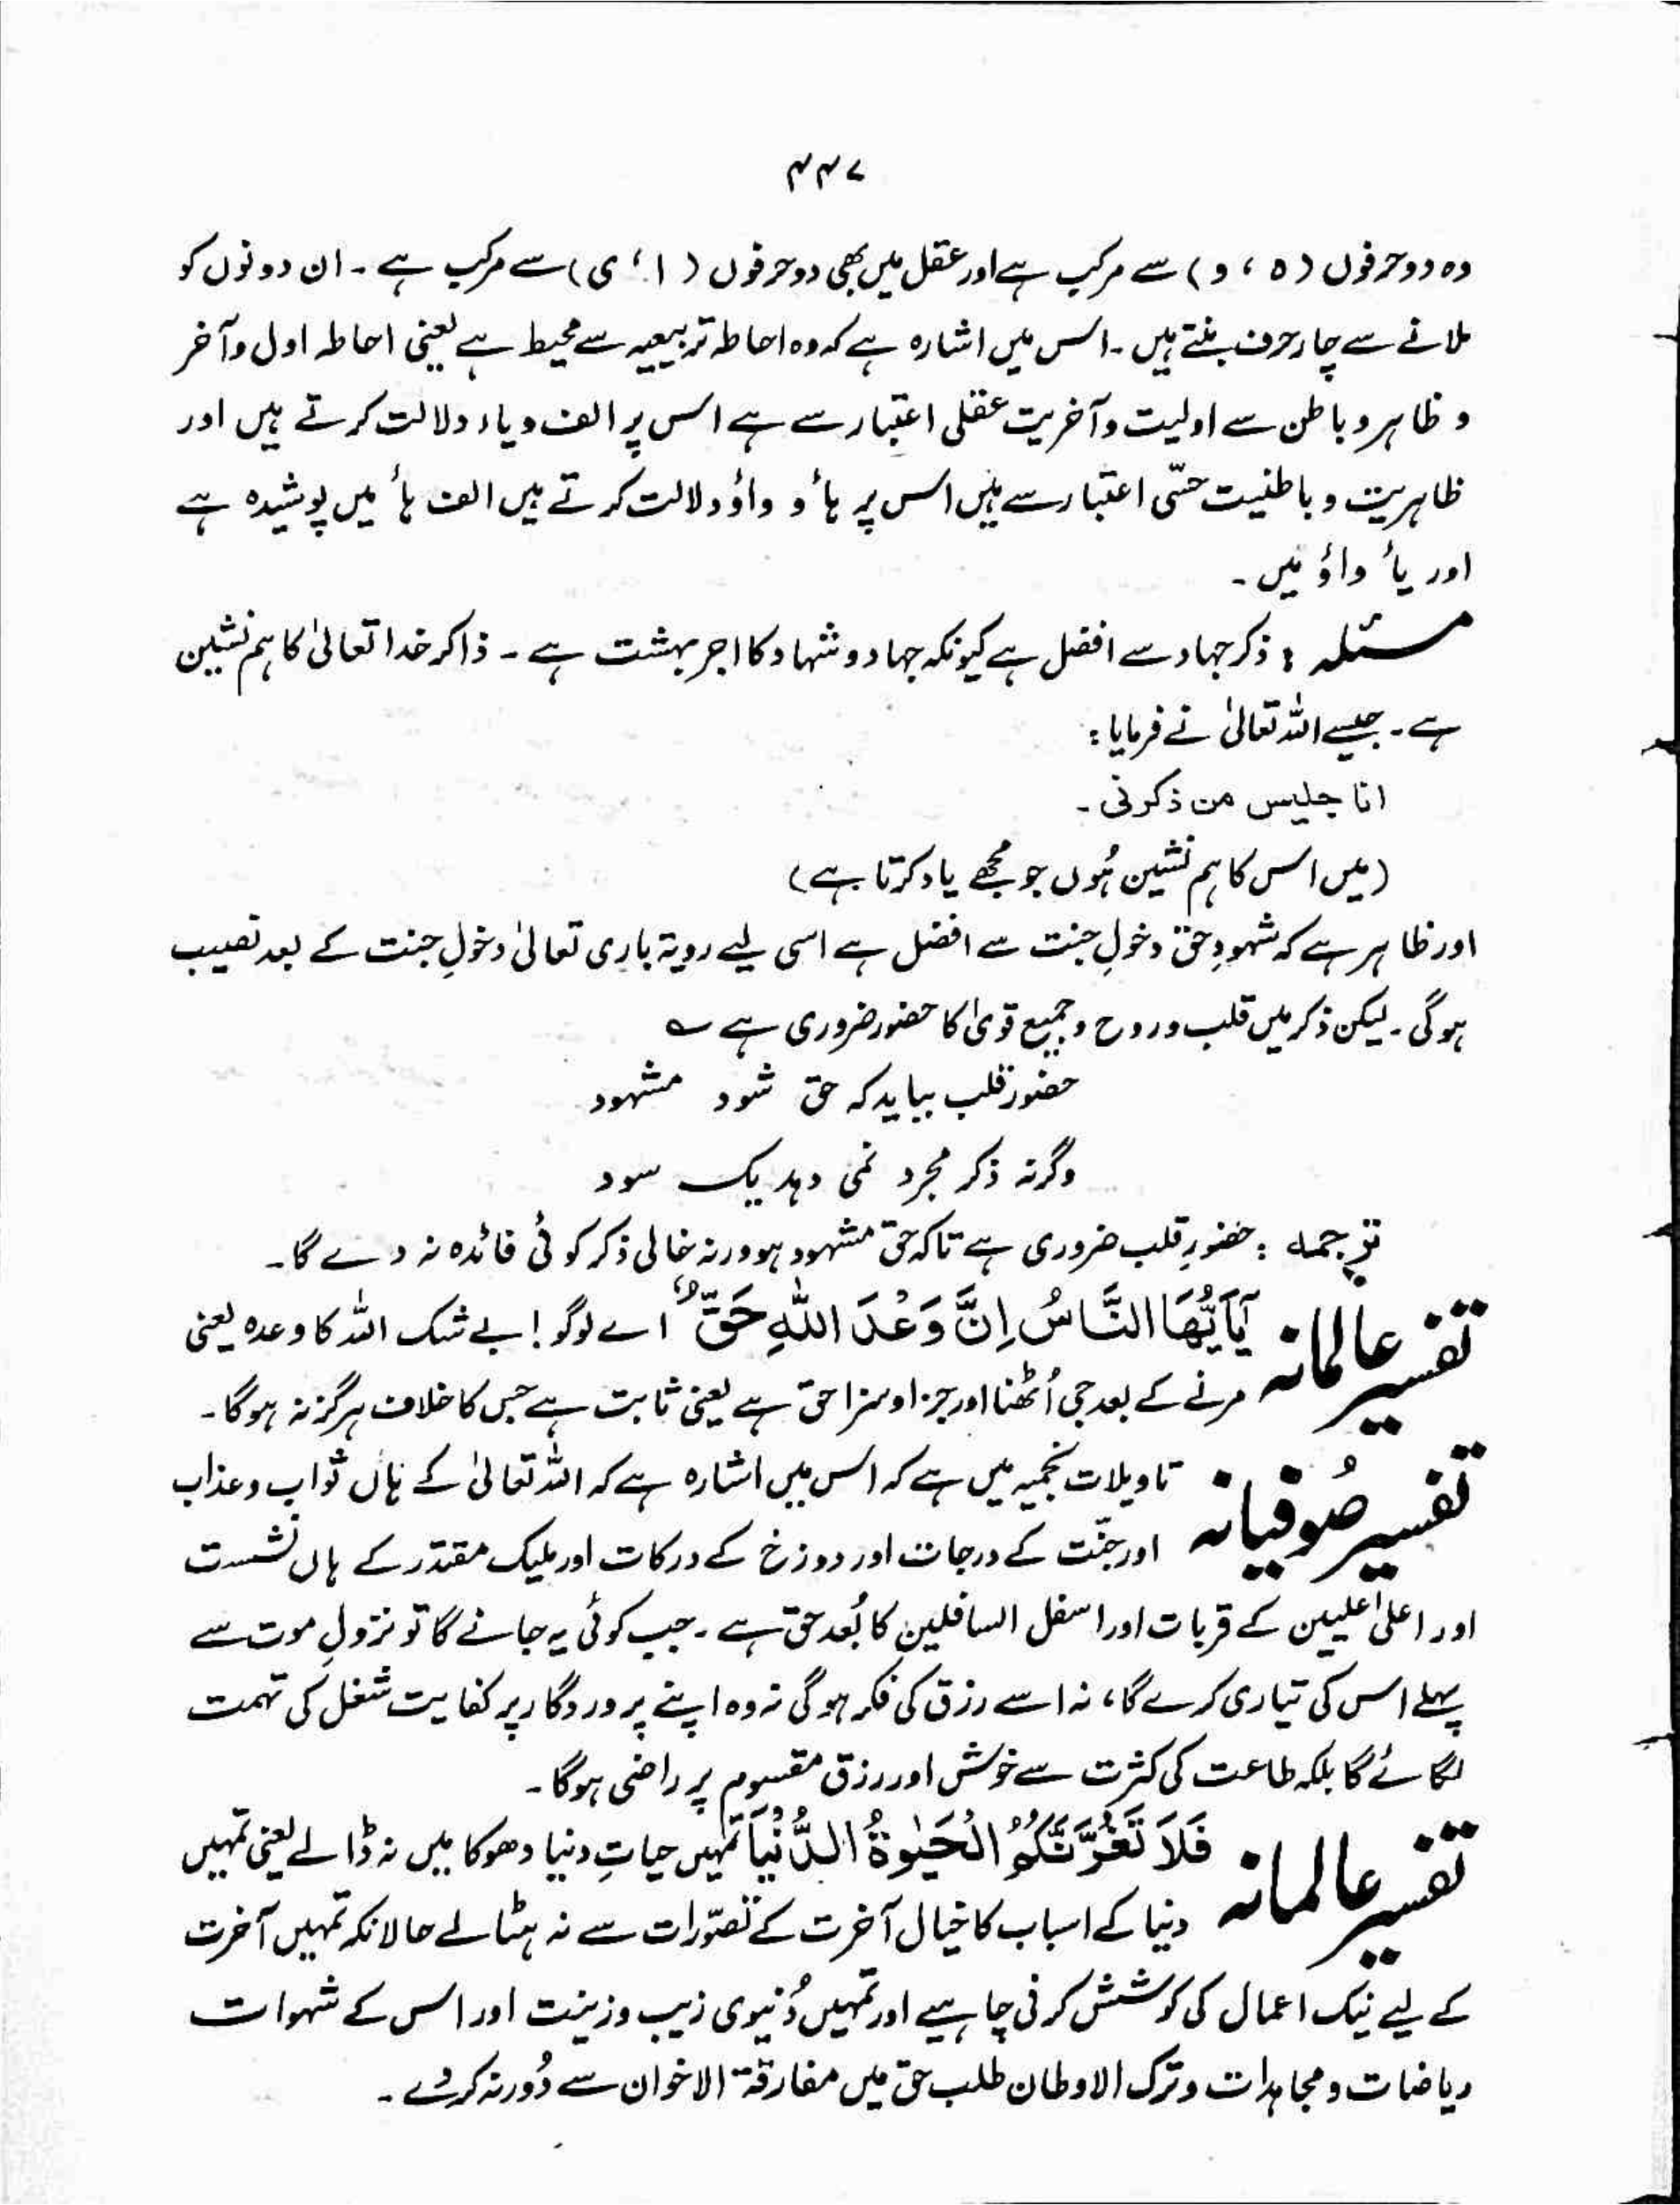 ۴۴۷
وہ دو حرفوں (ہ ، و) سے مرکب ہے اور عقل میں بھی دو حرفوں (ا ، ی) سے مرکب ہے ۔ ان دونوں کو
ملانے سے چار حرف بنتے ہیں ۔ اس میں اشارہ ہے کہ وہ احاطہ تربیعیہ سے محیط ہے یعنی احاطہ اول و آخر
و ظاہر و باطن سے اولیت و آخریت عقلی اعتبار سے ہے اس پر الف و یاء دلالت کرتے ہیں اور
ظاہریت و باطنیت حسّی اعتبار سے ہیں اس پر ہأ و واؤ دلالت کرتے ہیں الف ہأ میں پوشیدہ ہے
اور یأ واؤ میں ۔
مسئلہ : ذکر جہاد سے افضل ہے کیونکہ جہاد و شہاد کا اجر بہشت ہے ۔ ذاکر خدا تعالیٰ کا ہم نشین
ہے ۔ جیسے اللہ تعالیٰ نے فرمایا :
انا جلیس من ذکرنی ۔
(میں اس کا ہم نشین ہُوں جو مجھے یاد کرتا ہے)
اور ظاہر ہے کہ شہودِ حق دخولِ جنت سے افضل ہے اسی لیے رویۃ باری تعالیٰ دخولِ جنت کے بعد نصیب
ہوگی ۔ لیکن ذکر میں قلب و روح و جمیع قویٰ کا حضور ضروری ہے ؎
حضور قلب بباید کہ حق شود مشہود
وگرنہ ذکر مجرد نمی دہد یک سود
ترجمہ : حضورِ قلب ضروری ہے تاکہ حق مشہود ہو ورنہ خالی ذکر کوئی فائدہ نہ دے گا ۔
تفسیر عالمانہ یٰٓاَیُّھَا النَّاسُ اِنَّ وَعْدَ اللّٰہِ حَقٌّ اے لوگو ! بے شک اللہ کا وعدہ یعنی
مرنے کے بعد جی اُٹھنا اور جزا و سزا حق ہے یعنی ثابت ہے جس کا خلاف ہرگز نہ ہوگا ۔
تفسیر صُوفیانہ تاویلات نجمیہ میں ہے کہ اس میں اشارہ ہے کہ اللہ تعالیٰ کے ہاں ثواب و عذاب
اور جنّت کے درجات اور دوزخ کے درکات اور ملیک مقتدر کے ہاں نشست
اور اعلیٰ علیین کے قربات اور اسفل السافلین کا بُعد حق ہے ۔ جب کوئی یہ جانے گا تو نزولِ موت سے
پہلے اس کی تیاری کرے گا ، نہ اسے رزق کی فکر ہوگی نہ وہ اپنے پروردگار پر کفایت شغل کی تہمت
لگائے گا بلکہ طاعت کی کثرت سے خوش اور رزق مقسوم پر راضی ہوگا ۔
تفسیر عالمانہ فَلَا تَغُرَّنَّکُمُ الْحَیٰوۃُ الدُّنْیَا تمہیں حیاتِ دنیا دھوکا میں نہ ڈالے یعنی تمہیں
دنیا کے اسباب کا خیال آخرت کے تصوّرات سے نہ ہٹا لے حالانکہ تمہیں آخرت
کے لیے نیک اعمال کی کوشش کرنی چاہیے اور تمہیں دُنیوی زیب و زینت اور اس کے شہوات
ریاضات و مجاہدات و ترک الاوطان طلب حق میں مفارقۃ الاخوان سے دُور نہ کر دے ۔